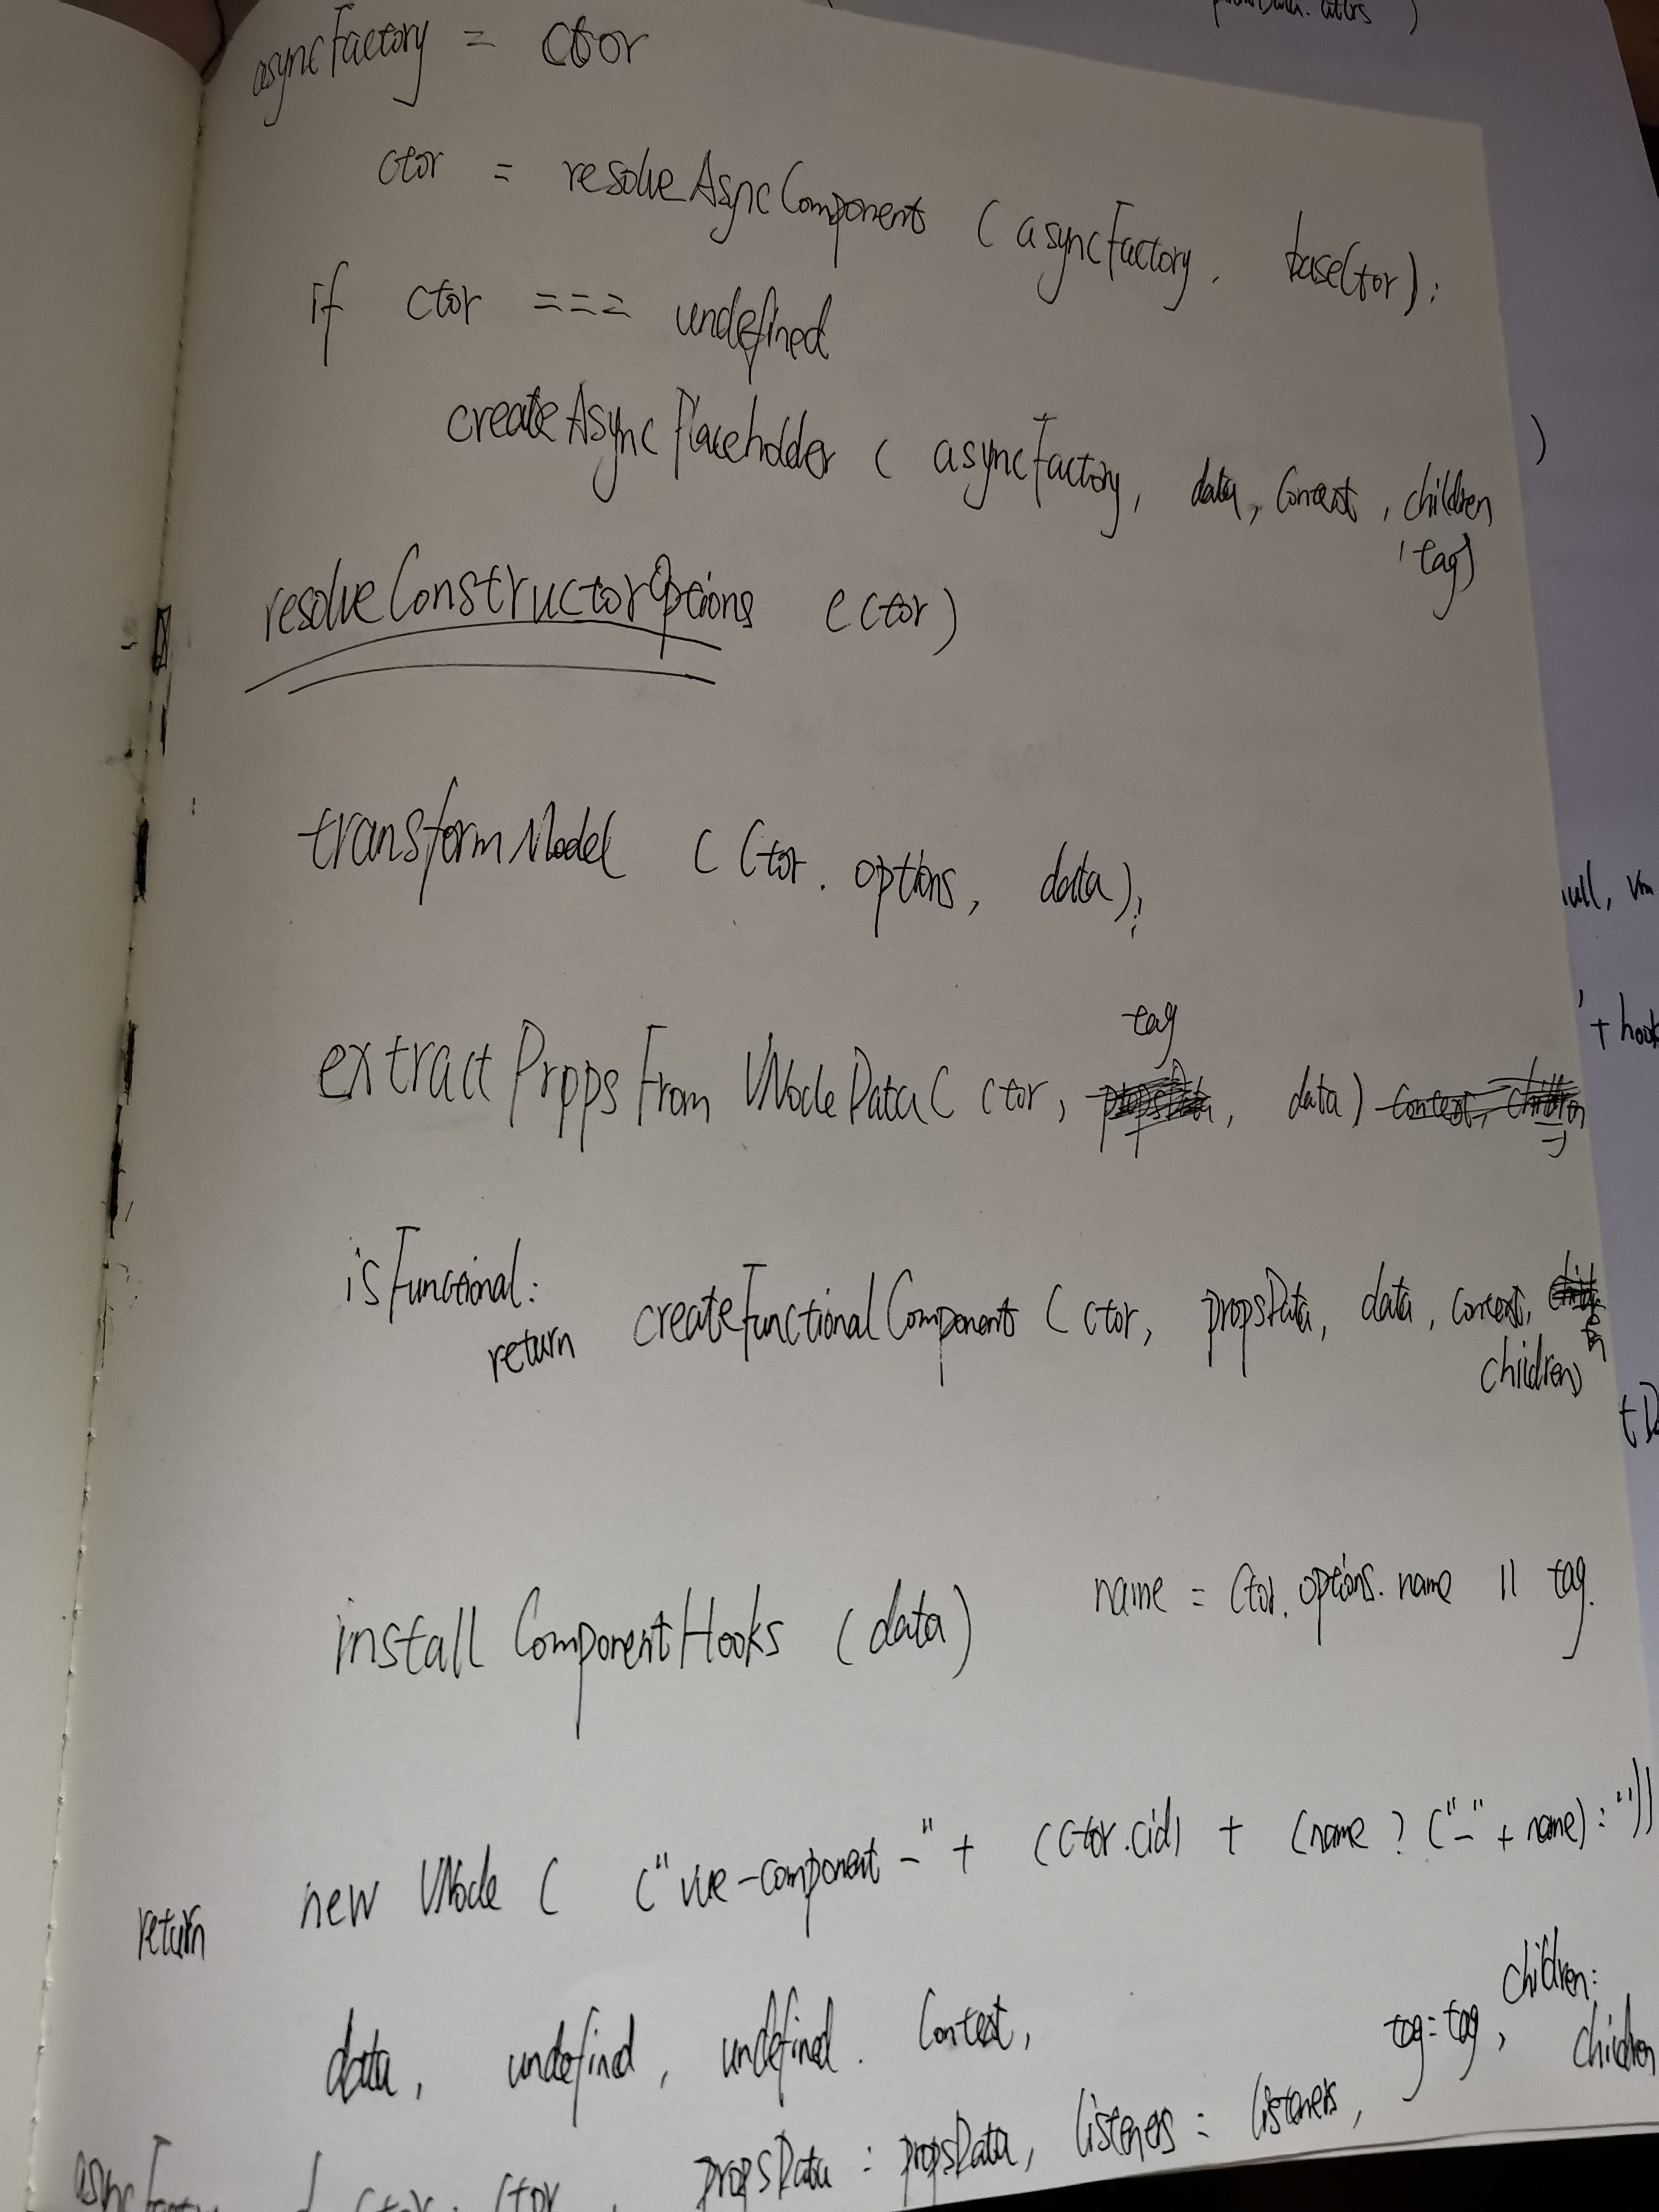 propsData. attrs )
asyncFactory = Ctor
ctor = resolveAsyncComponent ( asyncFactory, baseCtor);
if ctor === undefined
createAsyncPlaceholder ( asyncFactory, data, Context, children
, tag)
)
resolveConstructorOptions (ctor)
transformModel ( Ctor. options, data);
null, vm
extractPropps From VNodeData( ctor, tag, data)
' + hook
isFunctional:
return createFunctionalComponent ( ctor, propsData, data, context,
children)
install ComponentHooks (data) name = Ctor. options. name || tag.
return new VNode ( ("vue-component-" + (Ctor.cid) + (name ? ("-" + name) : ''))
data, undefined, undefined. Context,
propsData : propsData, listeners : listeners, tag: tag, children:
children
asyncFactory Ctor: Ctor,